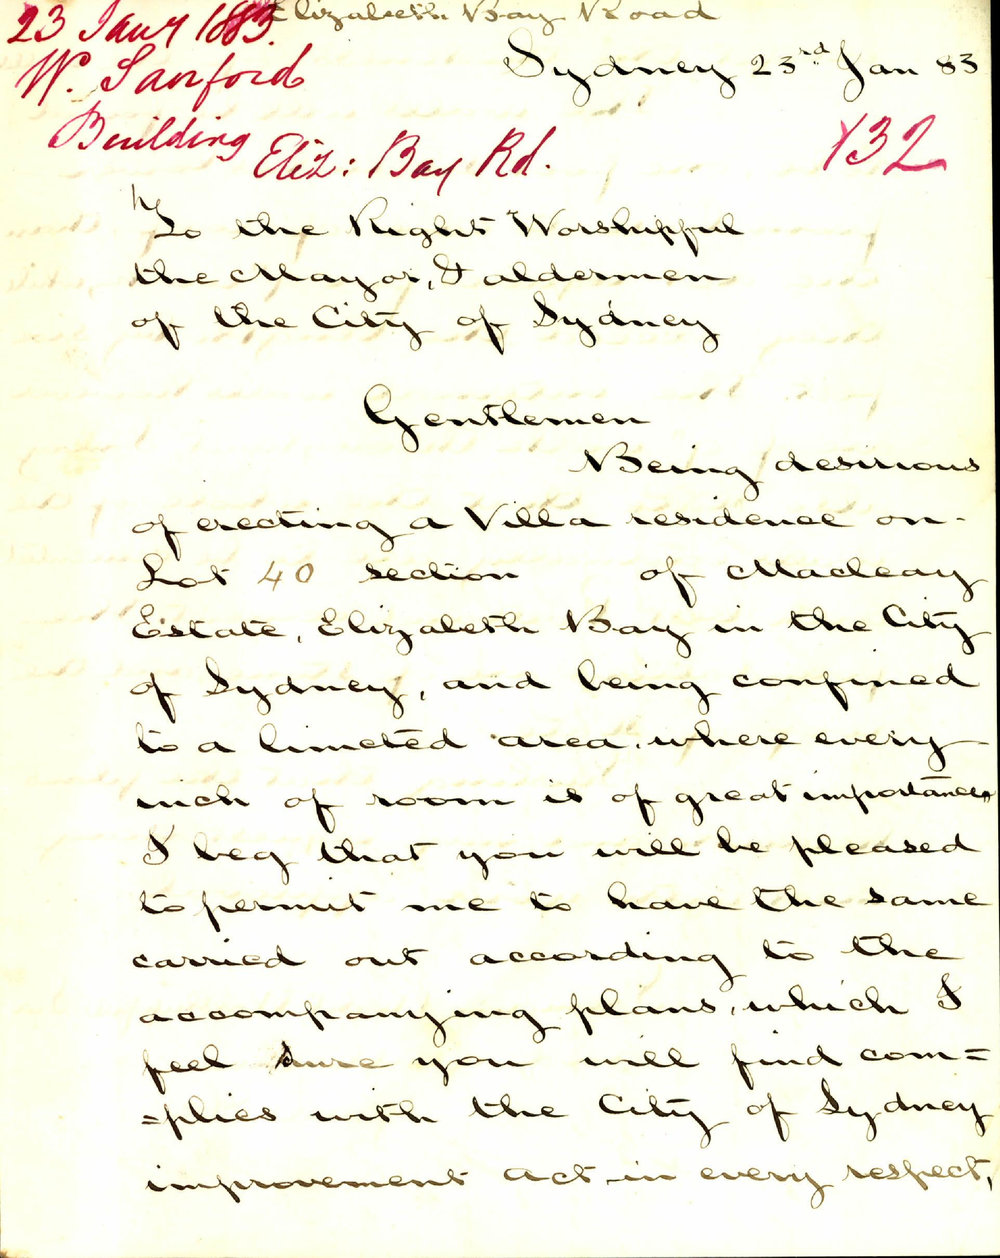 Elizabeth Bay Road
23 Jany 1883.
Sydney 23rd Jan 83
W. Sanford
Building
Eliz: Bay Rd.
132
To the Right Worshipful
the Mayor, & aldermen
of the City of Sydney
Gentlemen
Being desirious
of erecting a Villa residence on-
Lot 40 section of Macleay
Estate, Elizabeth Bay in the City
of Sydney, and being confined
to a limeted area, where every
inch of room is of great importance,
I beg that you will be pleased
to permit me to have the same
carried out according to the
accompanying plans, which I
feel sure you will find com=
=plies with the City of Sydney
improvement act in every respect,